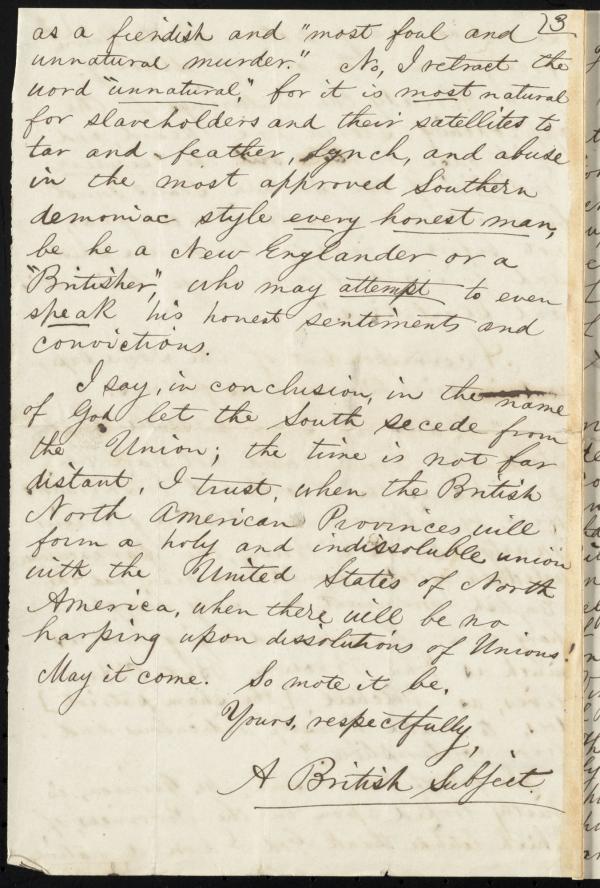 13
as a fiendish and "most foul and
unnatural murder." No, I retract the
word "unnatural," for it is most natural
for slaveholders and their satellites to
tar and feather, Lynch, and abuse
in the most approved Southern
demoniac style every honest man,
be he a New Englander or a
"Britisher", who may attempt to even
speak his honest sentiments and
convictions.
I say, in conclusion, in the name
of God let the South secede from
the Union; the time is not far
distant, I trust, when the British
North American Provinces will
form a holy and indissoluble union
with the United States of North
America, when there will be no
harping upon dissolutions of Unions!
May it come. So mote it be.
Yours, respectfully,
A British Subject.